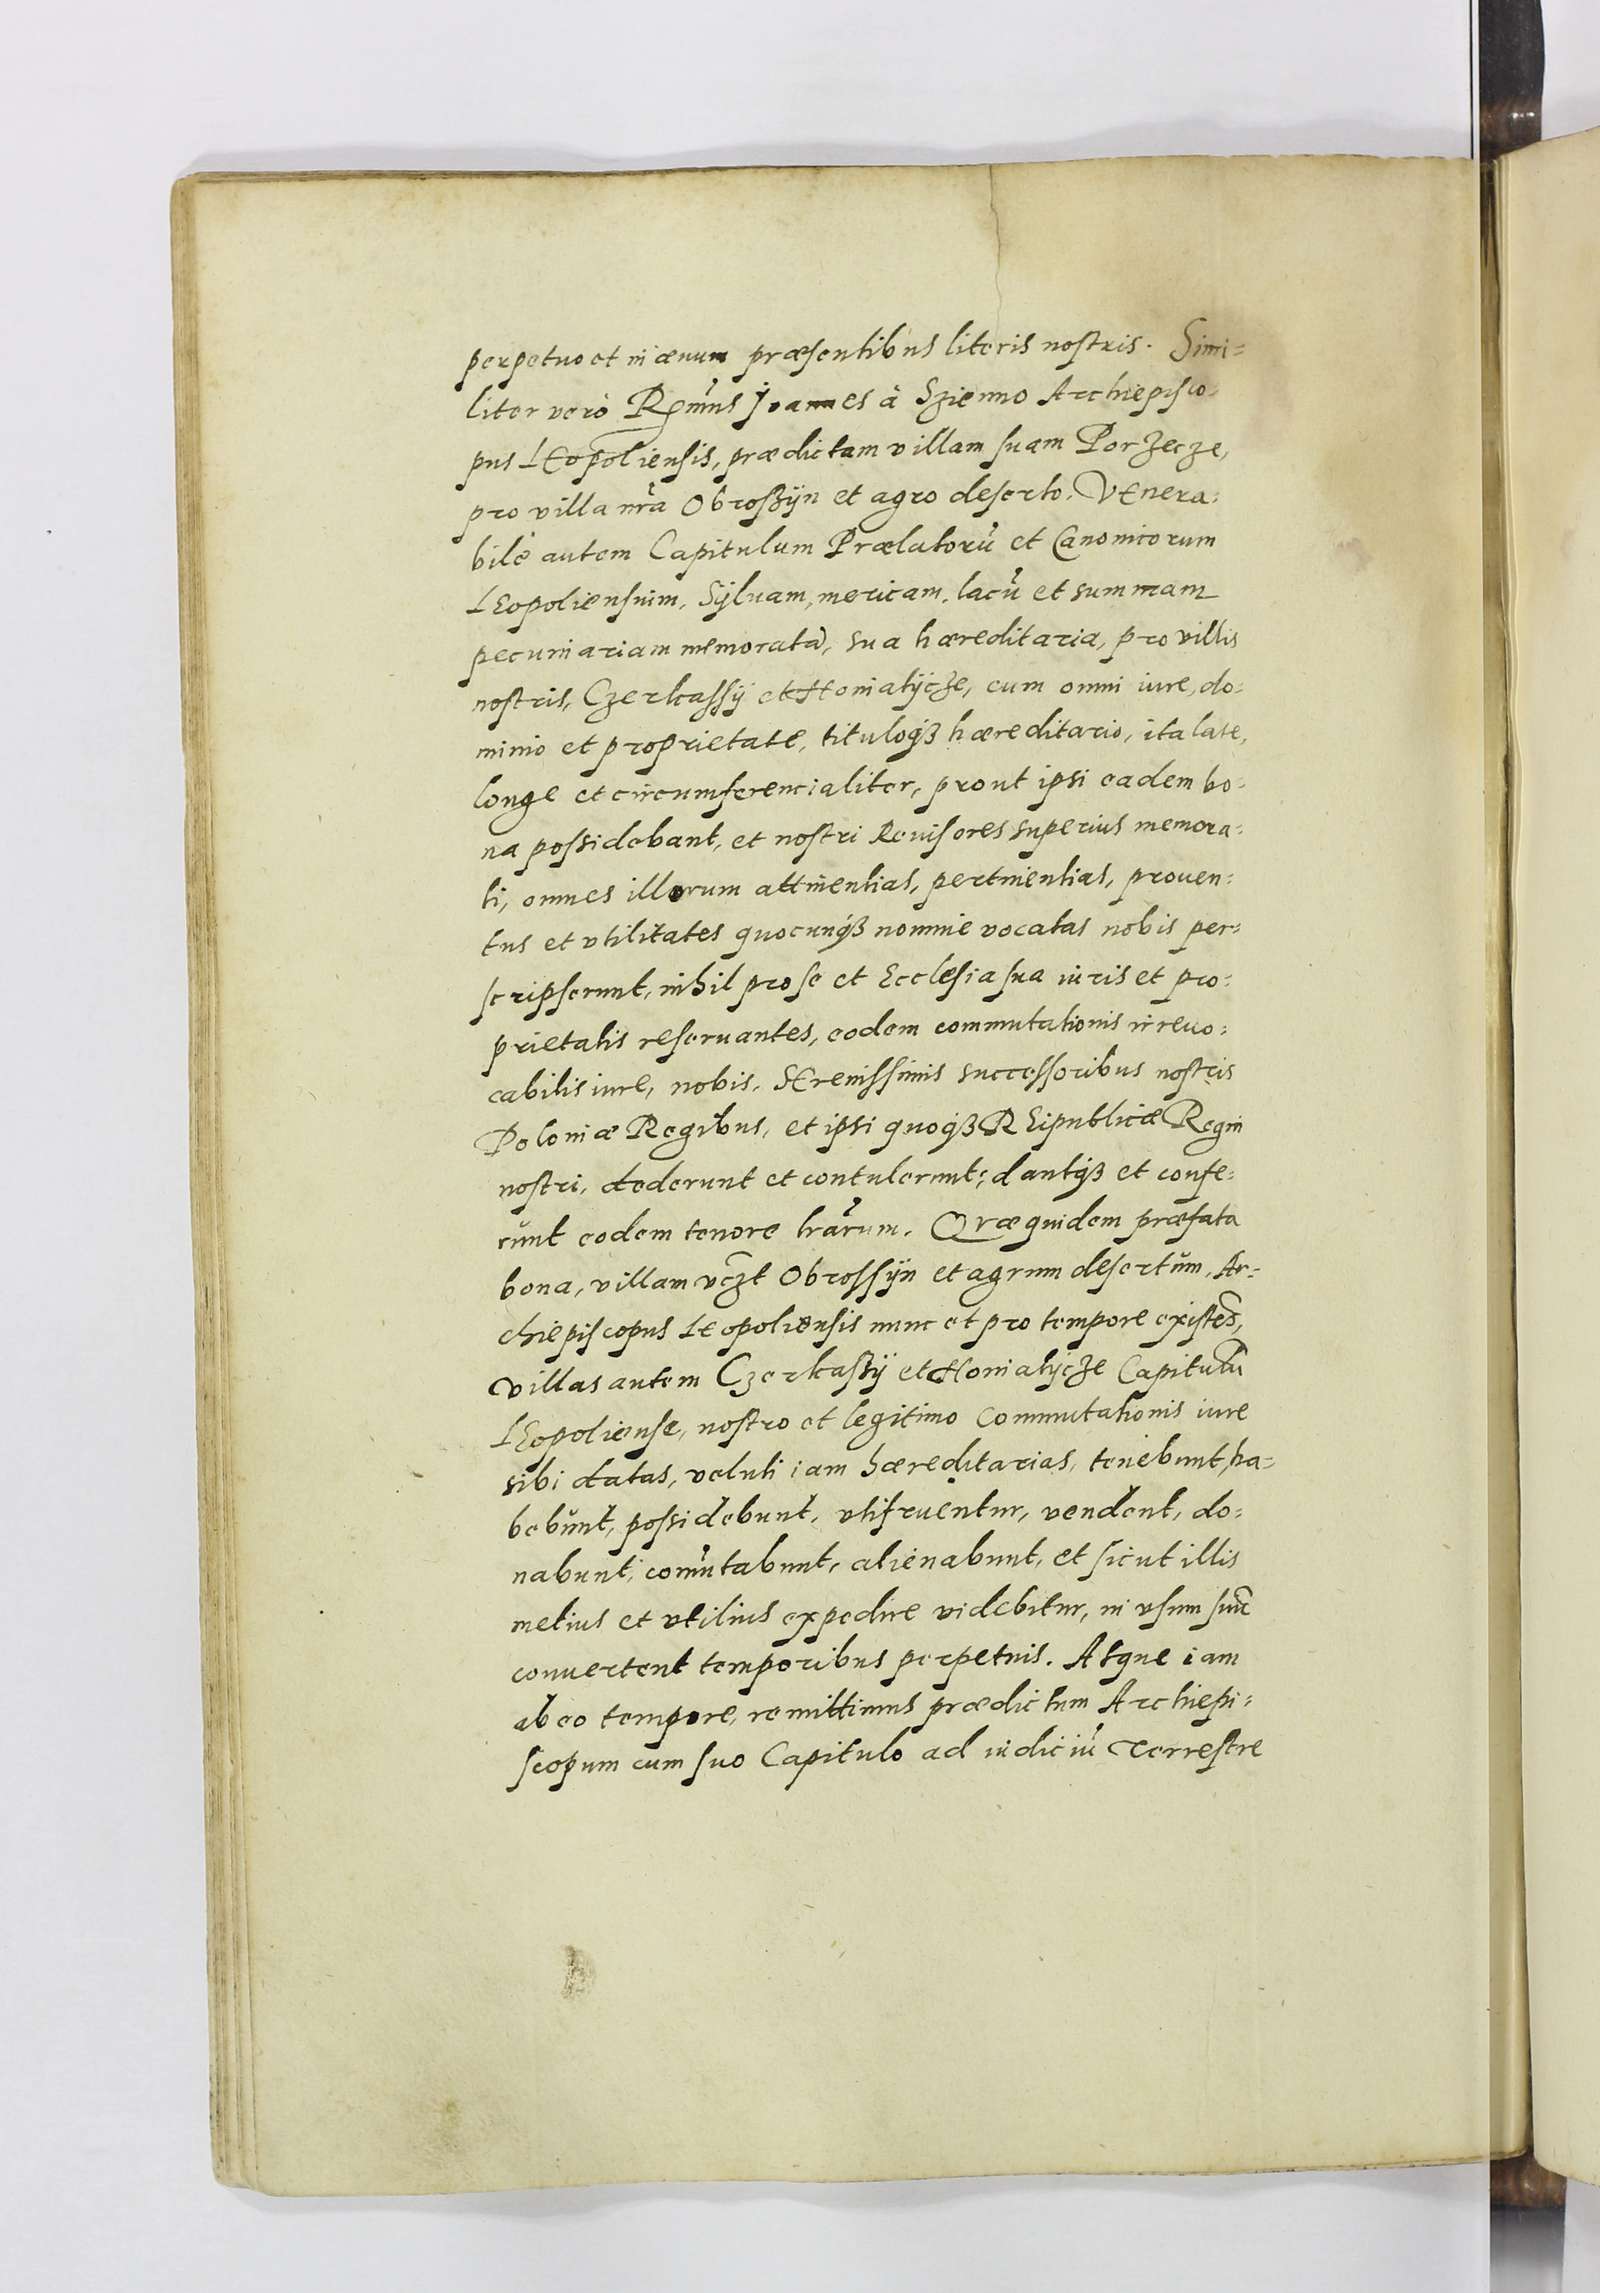 perpetuo et in ævum præsentibus literis nostris. Simi=
liter verò Rmūs Joannes à Szienno Archiepisco-
pus LEopoliensis, prædictam villam suam Porzecze,
pro villa nrā Obroßÿn et agro deserto. VEnera=
bile autem Capitulum Prælatorū et Canonicorum
LEopoliensium, Sÿluam, mericam, lacū et summam
pecuniariam memoratā, sua hæreditaria, pro villis
nostris, Czerkassÿ et Honiatÿcze, cum omni iure, do=
minio et proprietate, tituloqȝ hæreditario, ita late,
longe et circumferencialiter, prout ipsi eadem bo=
na possidebant, et nostri Reuisores superius memora=
ti, omnes illorum attinentias, pertinentias, prouen=
tus et vtilitates quocunqȝ nomine vocatas nobis per=
scripserunt, nihil pro se et Ecclesia sua iuris et pro=
prietatis reseruantes, eodem commutationis irreuo=
cabilis iure, nobis, SErenissimis successoribus nostris
Poloniæ Regibus, et ipsi quoqȝ REipublicæ Regni
nostri, dederunt et contulerunt; dantqȝ et confe=
runt eodem tenore lrārum. Quæquidem præfata
bona, villam vczt Obrossÿn et agrum desertum, Ar=
chiepiscopus LEopoliensis nunc et pro tempore existēs,
villas autem Czerkaßÿ et Honiatÿcze Capitulū
LEopoliense, nostro et legitimo Commutationis iure
sibi datas, veluti iam hæreditarias, tenebunt, ha=
bebunt, possidebunt, vtifruentur, vendent, do=
nabunt, comūtabunt, alienabunt, et sicut illis
melius et vtilius expedire videbitur, in vsum suū
conuertent temporibus perpetuis. Atque iam
ab eo tempore, remittimus prædictum Archiepi=
scopum cum suo Capitulo ad iudiciū Terrestre